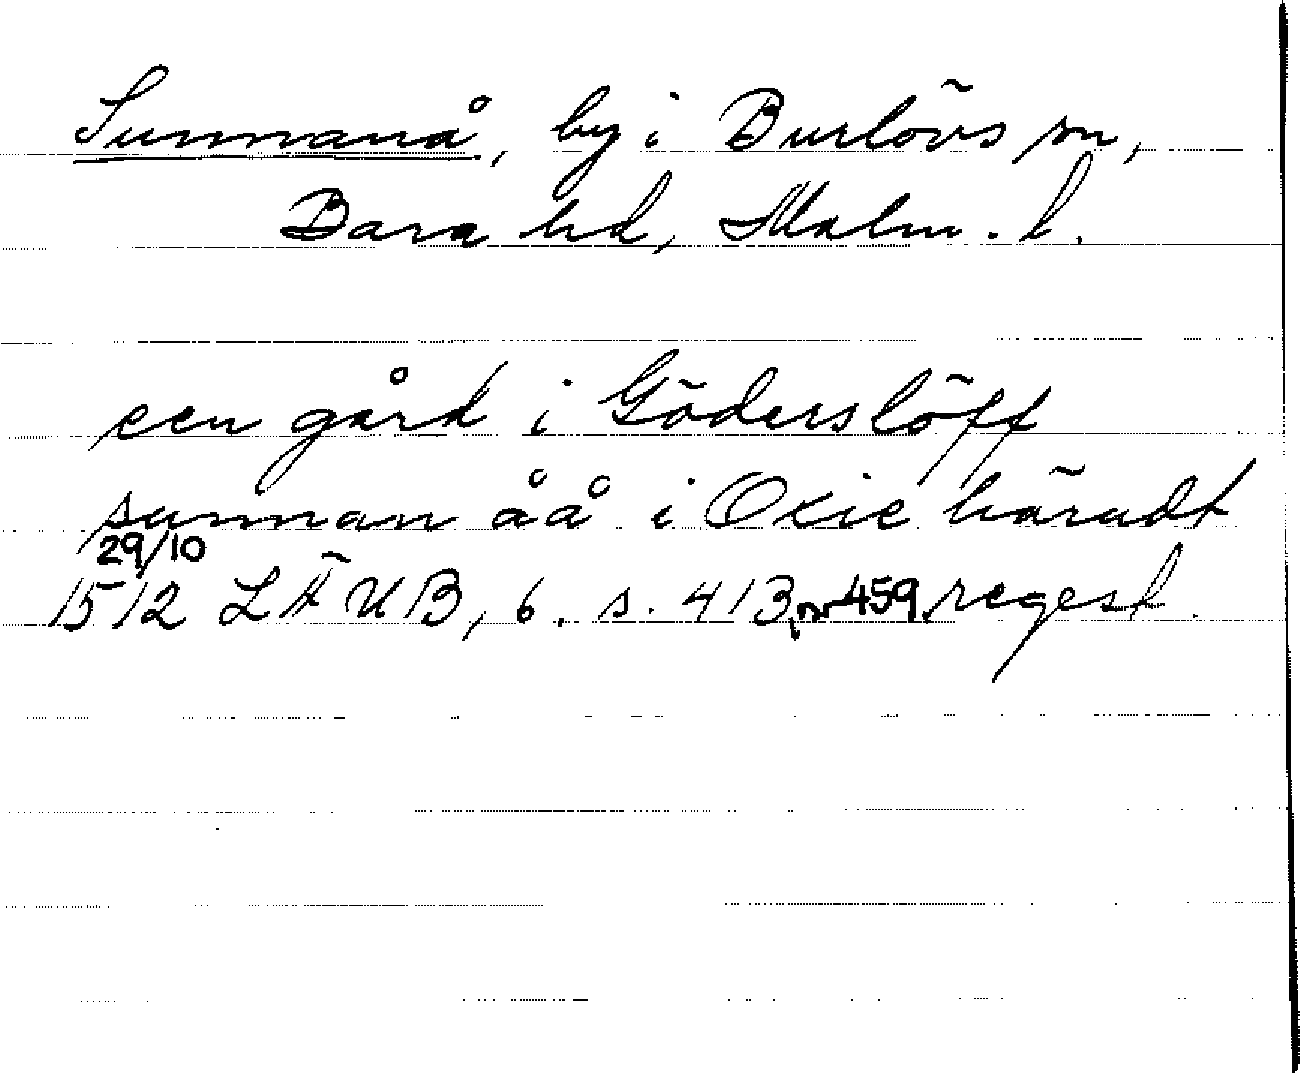 Sunnanå, by i Burlövs sn,
Bara hd, Malm. l.
een gård i Göderslöff
sunnan åå i Oxie häradt
29/10
1512 LÄUB, 6. s. 413, nr 459. regest.